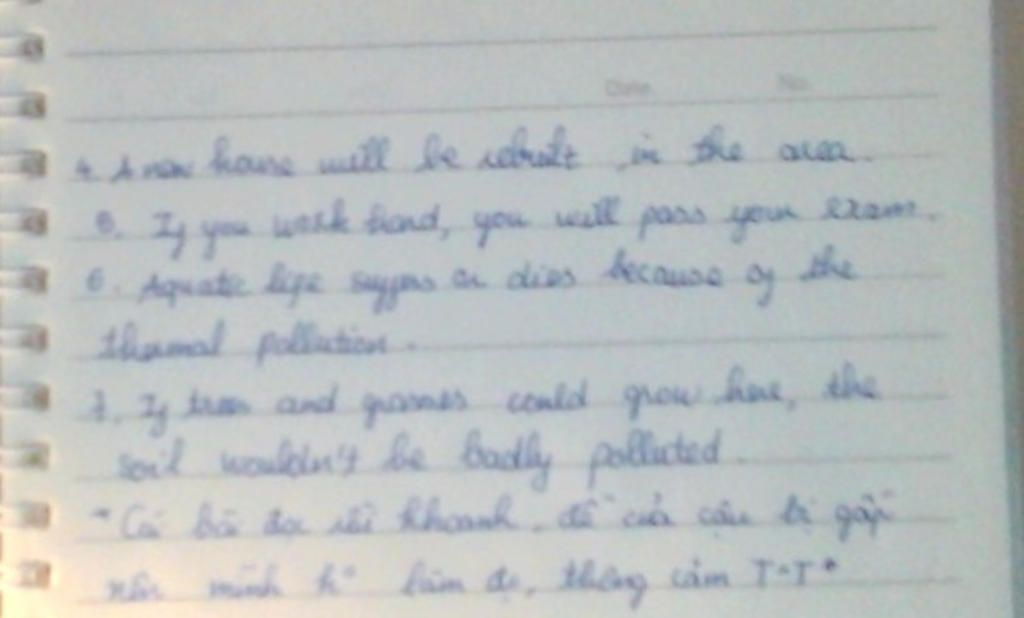 Date No.
4. A new house will be rebuilt in the area.
5. If you work hard, you will pass your exam.
6. Aquatic life suffers or dies because of the
thermal pollution.
7. If trees and grasses could grow here, the
soil wouldn't be badly polluted.
khoanh, đề của cậu bị gấp
nên mình k° làm đc, thông cảm T^T *